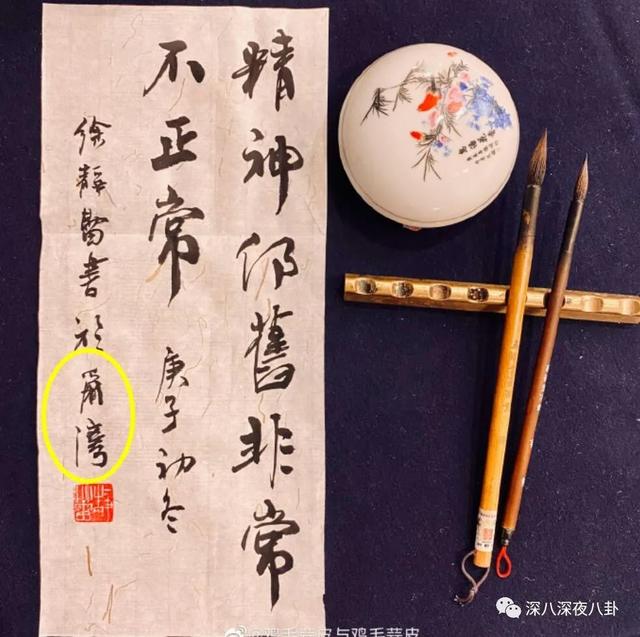 精神仍舊非常
不正常 庚子初冬
徐靜蕾書於灣
@鸡毛蒜皮与鸡毛蒜皮
深八深夜八卦